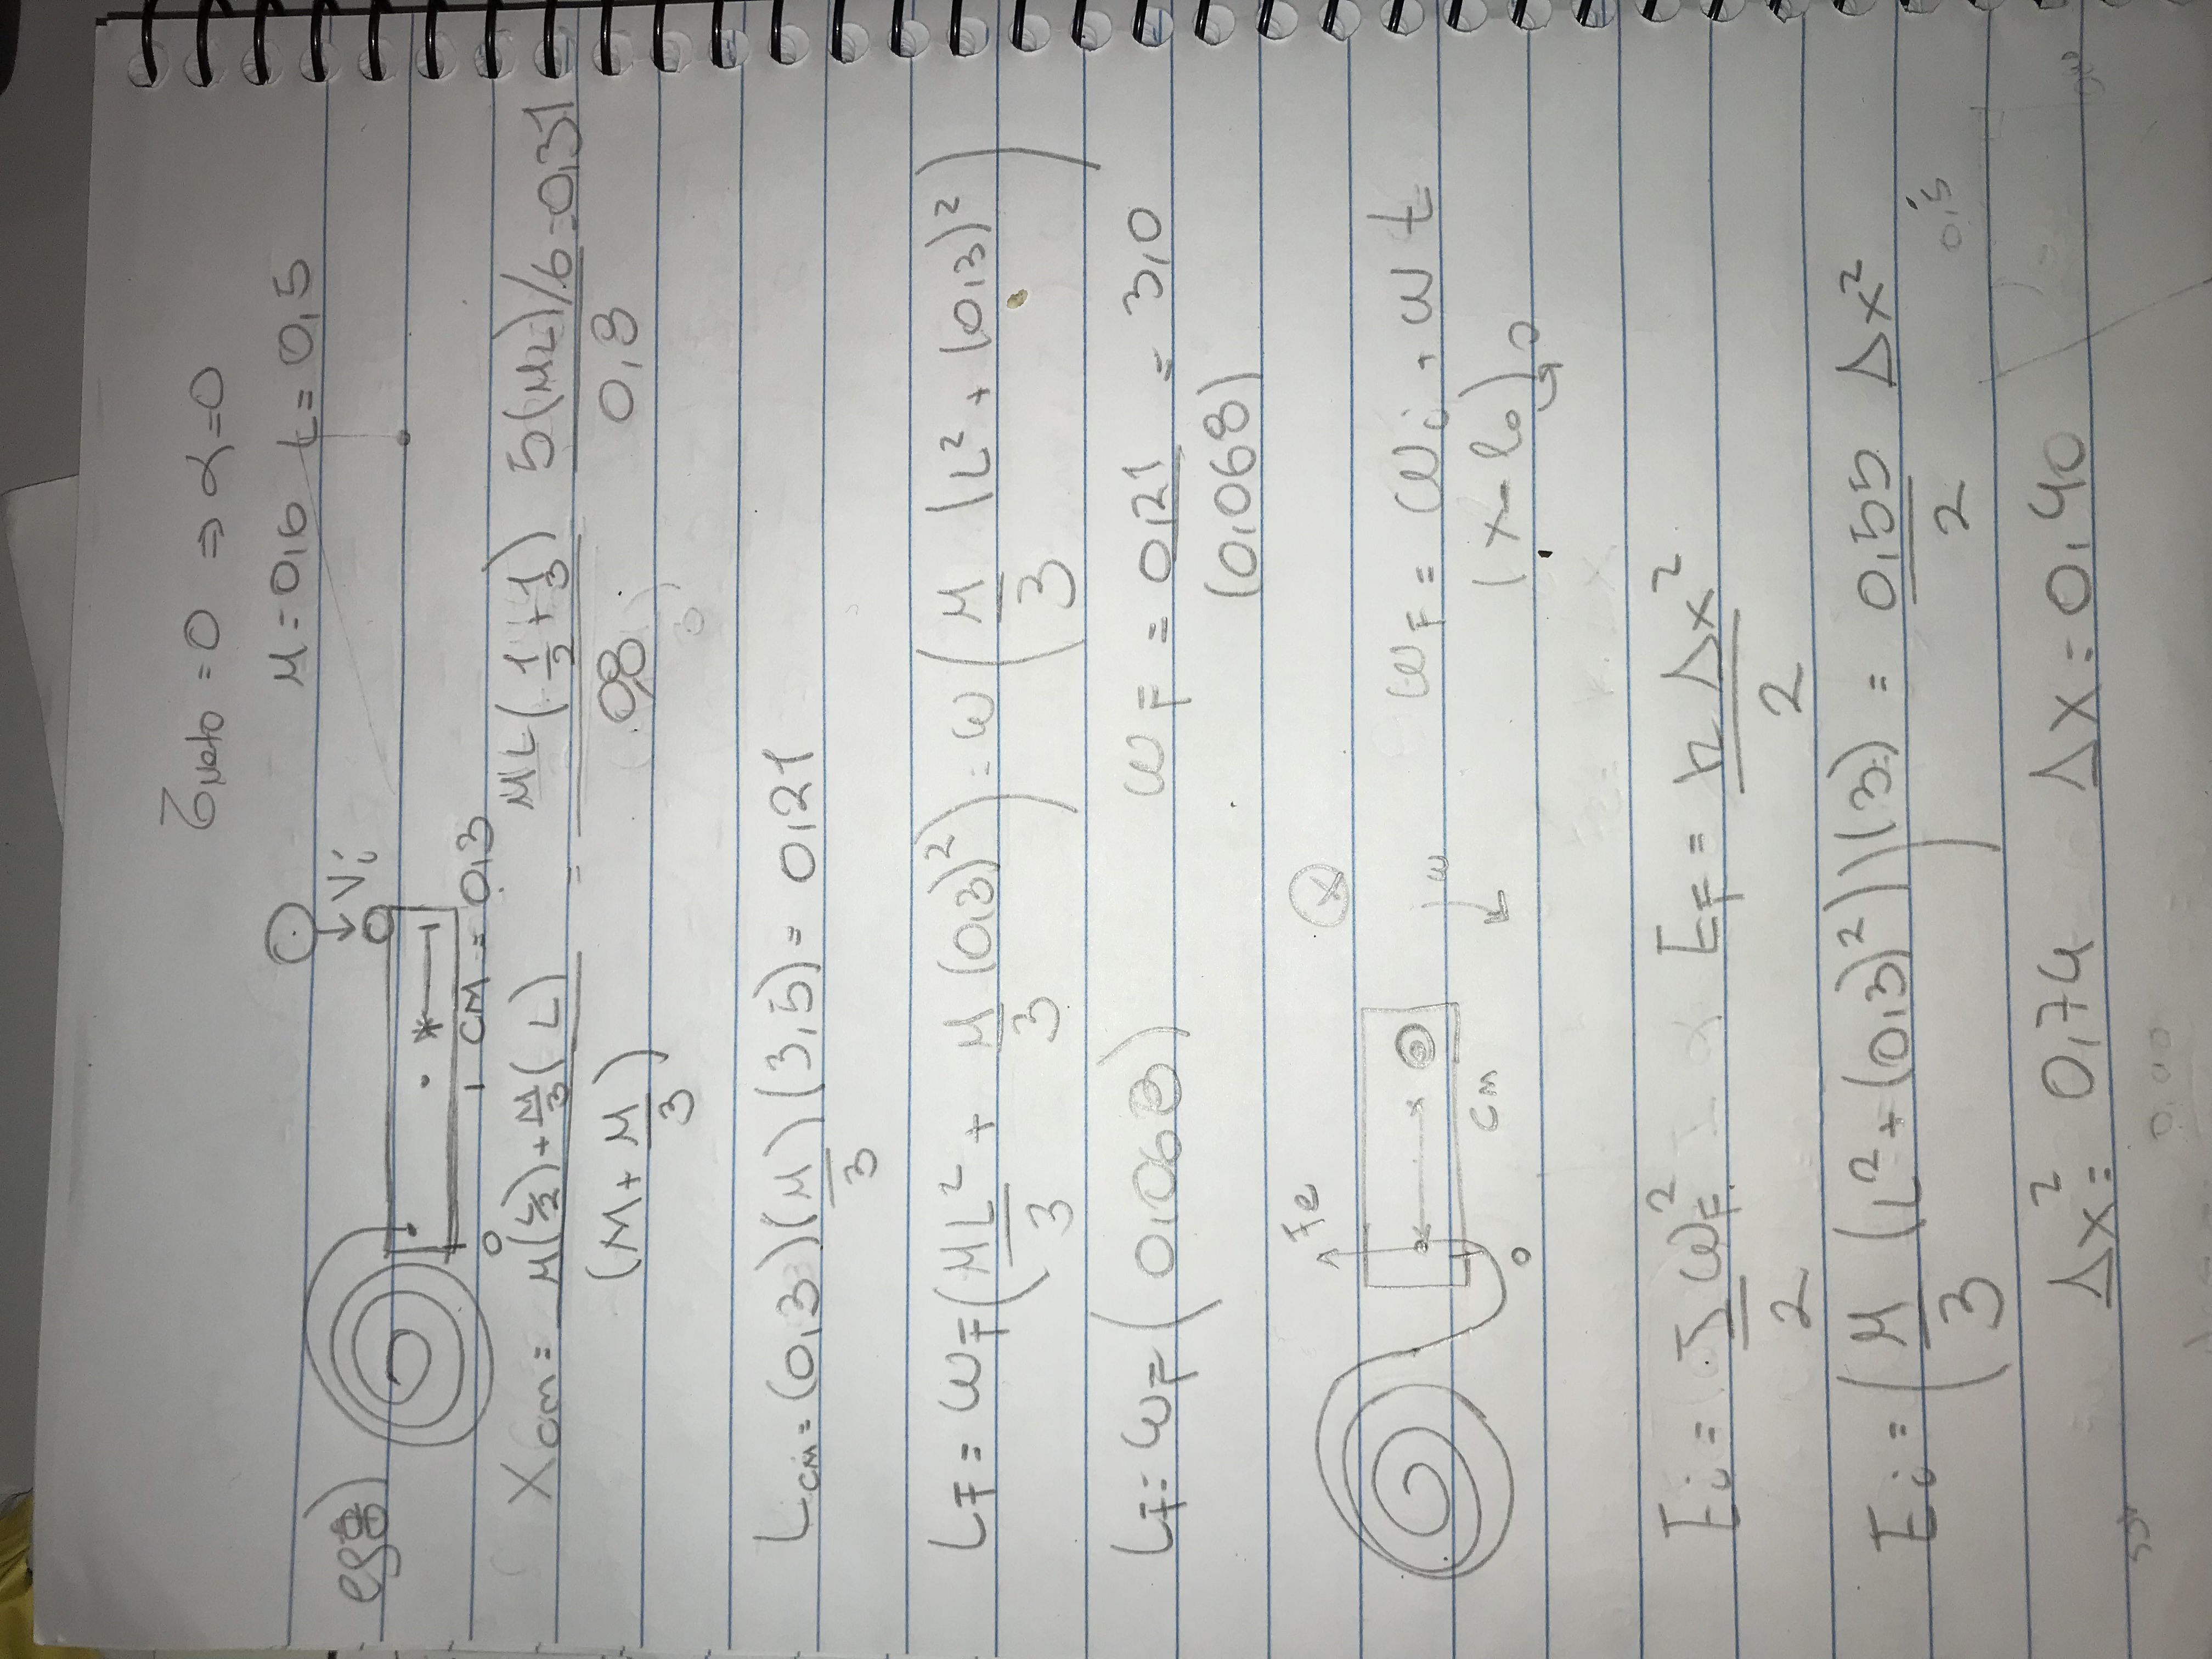 τneto = 0 ⇒ α = 0
M = 0,6 L = 0,5
Vi
CM = 0,3
o
Xcm = (M(L/2) + M/3 (L)) / (M + M/3) = ML(1/2 + 1/3) / 0,8 5(ML)/6 / 0,8 = 0,31
Lcm = (0,3)(M/3)(3,5) = 0,21
LF = ωF(ML²/3 + M/3 (0,3)²) = ω(M/3 (L² + (0,3)²)
LF = ωF(0,068) ωF = 0,21/(0,068) = 3,0
Fe
x
ω
cm
o
ωF = ωi + ωt
(x - lo)
Ei = I/2 ωF² EF = k Δx²/2
Ei = (M/3 (L² + (0,3)²))(3) = 0,55/2 Δx²
0,5
Δx² = 0,74 Δx = 0,40